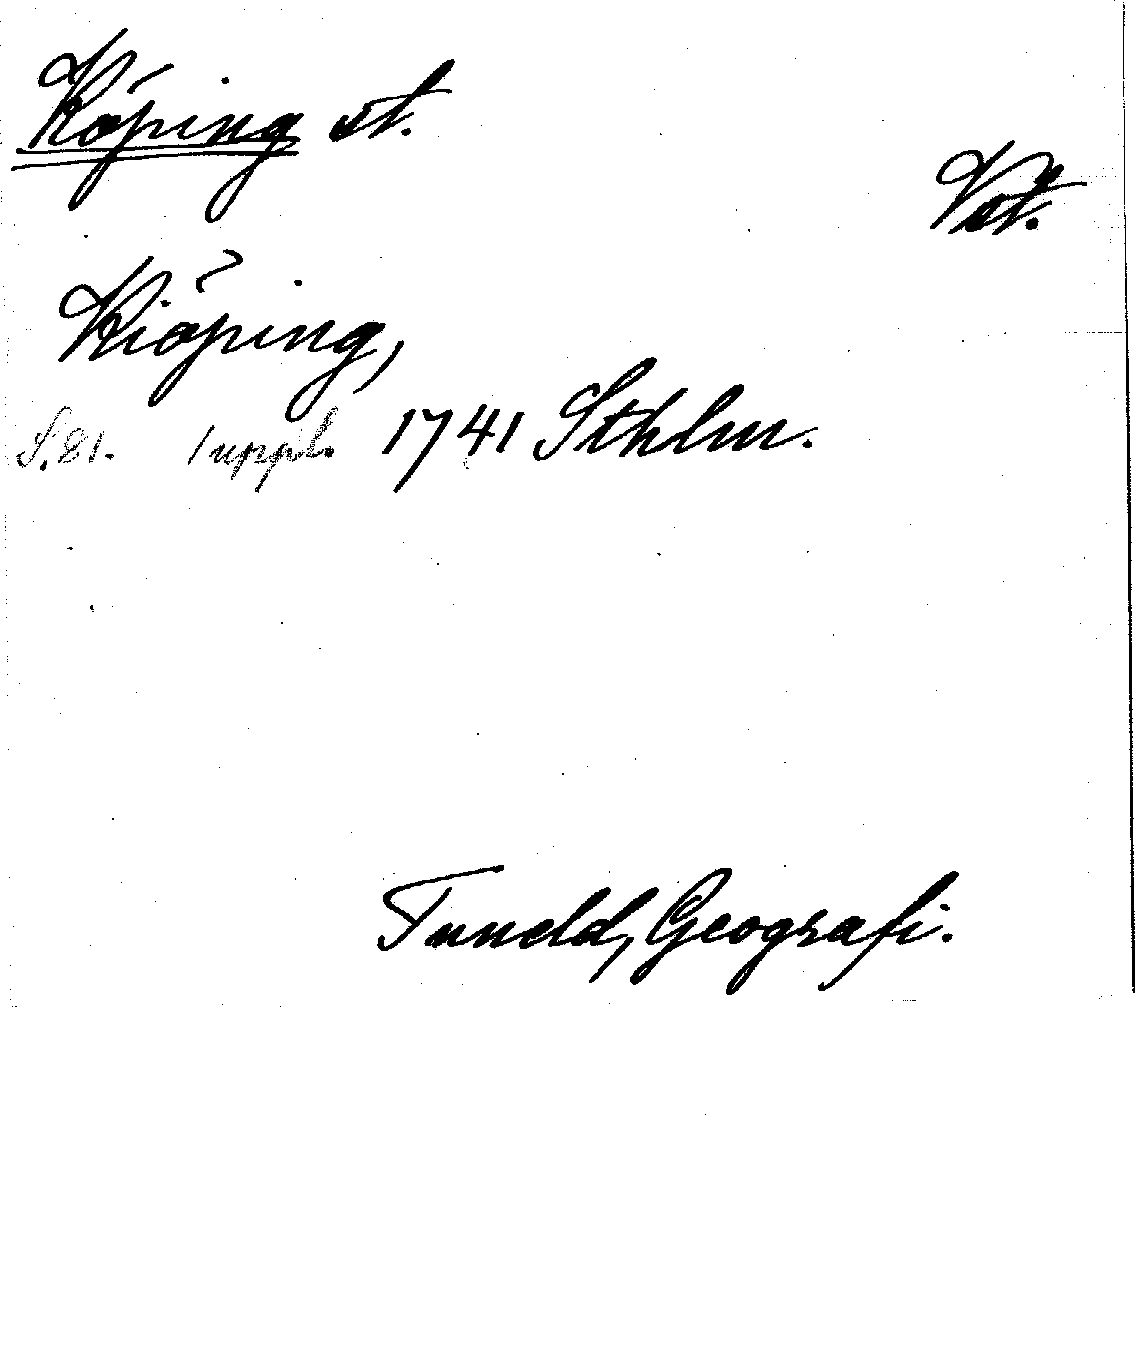 Köping st.
Vst.
Kiöping,
S. 81. 1 uppl. 1741 Sthlm.
Tuneld, Geografi.